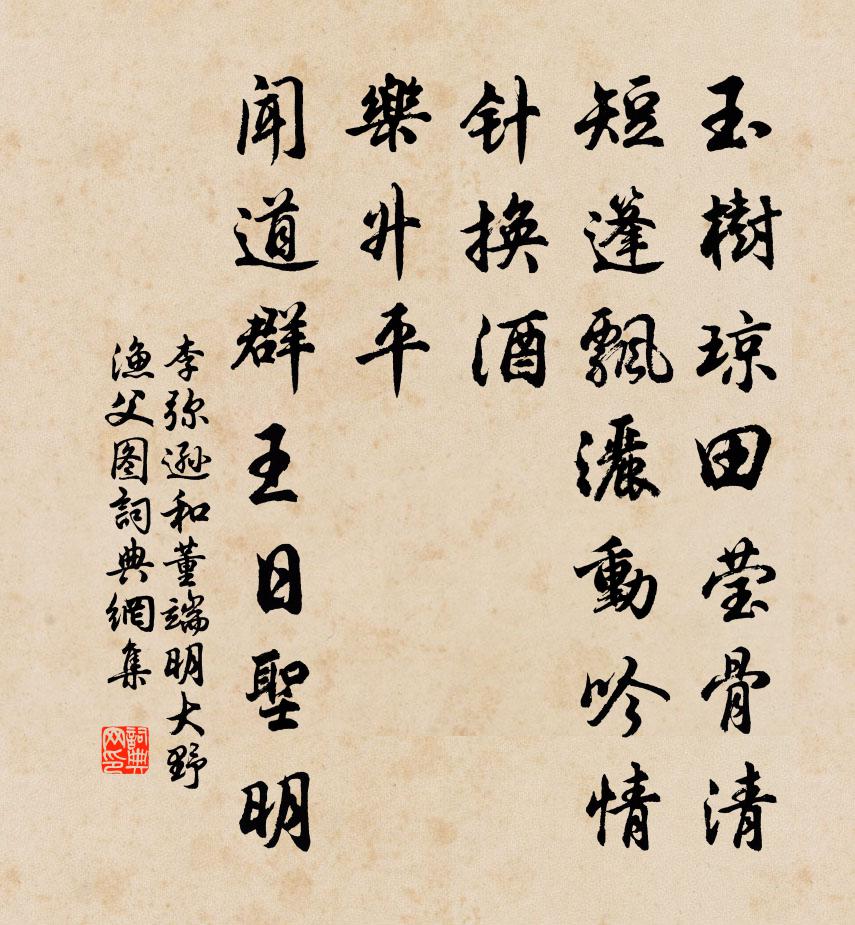 玉樹琼田莹骨清
短蓬飄灑動吟情
针换酒
樂升平
闻道群王日聖明
李弥遜和董端明大野
渔父图詞典網集
詞典
网印